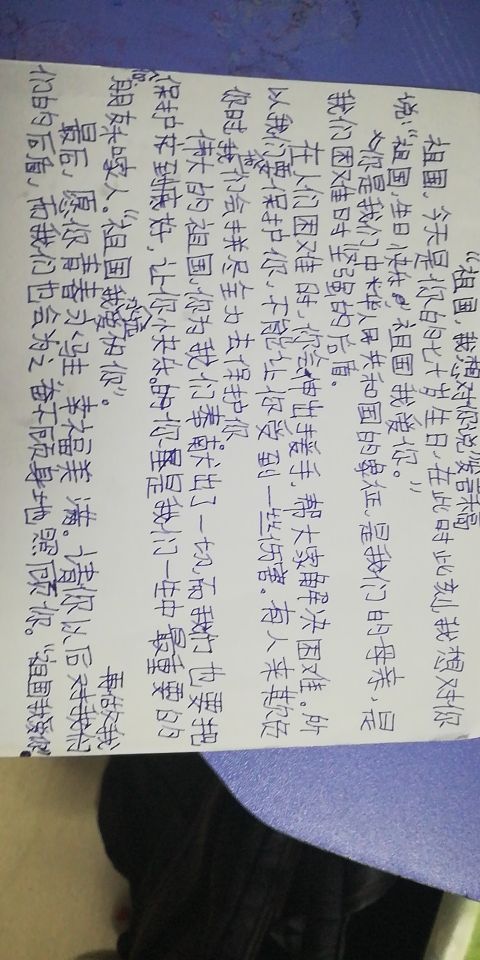 “祖国,我想对你说”发言稿
祖国,今天是你的七十岁生日,在此时此刻,我想对你
说“祖国,生日快乐,祖国我爱你。”
你是我们中华人民共和国的象征,是我们的母亲,是
我们困难时坚强的后盾。
在人们困难时,你会伸出援手,帮大家解决困难。所
以我们要保护你,不能让你受到一丝伤害。有人来欺负
你时我们会拼尽全力去保护你
伟大的祖国,你为我们奉献出了一切,而我们也要把
你保护好到底好,让你快乐。的你是我们一生中最重要的
朋友和家人。“祖国我永远爱和你”。
最后,愿你青春永驻幸福美满。请你以后要做我
们的后盾,而我们也会为之奋不顾身地照顾你。“祖国我爱你”